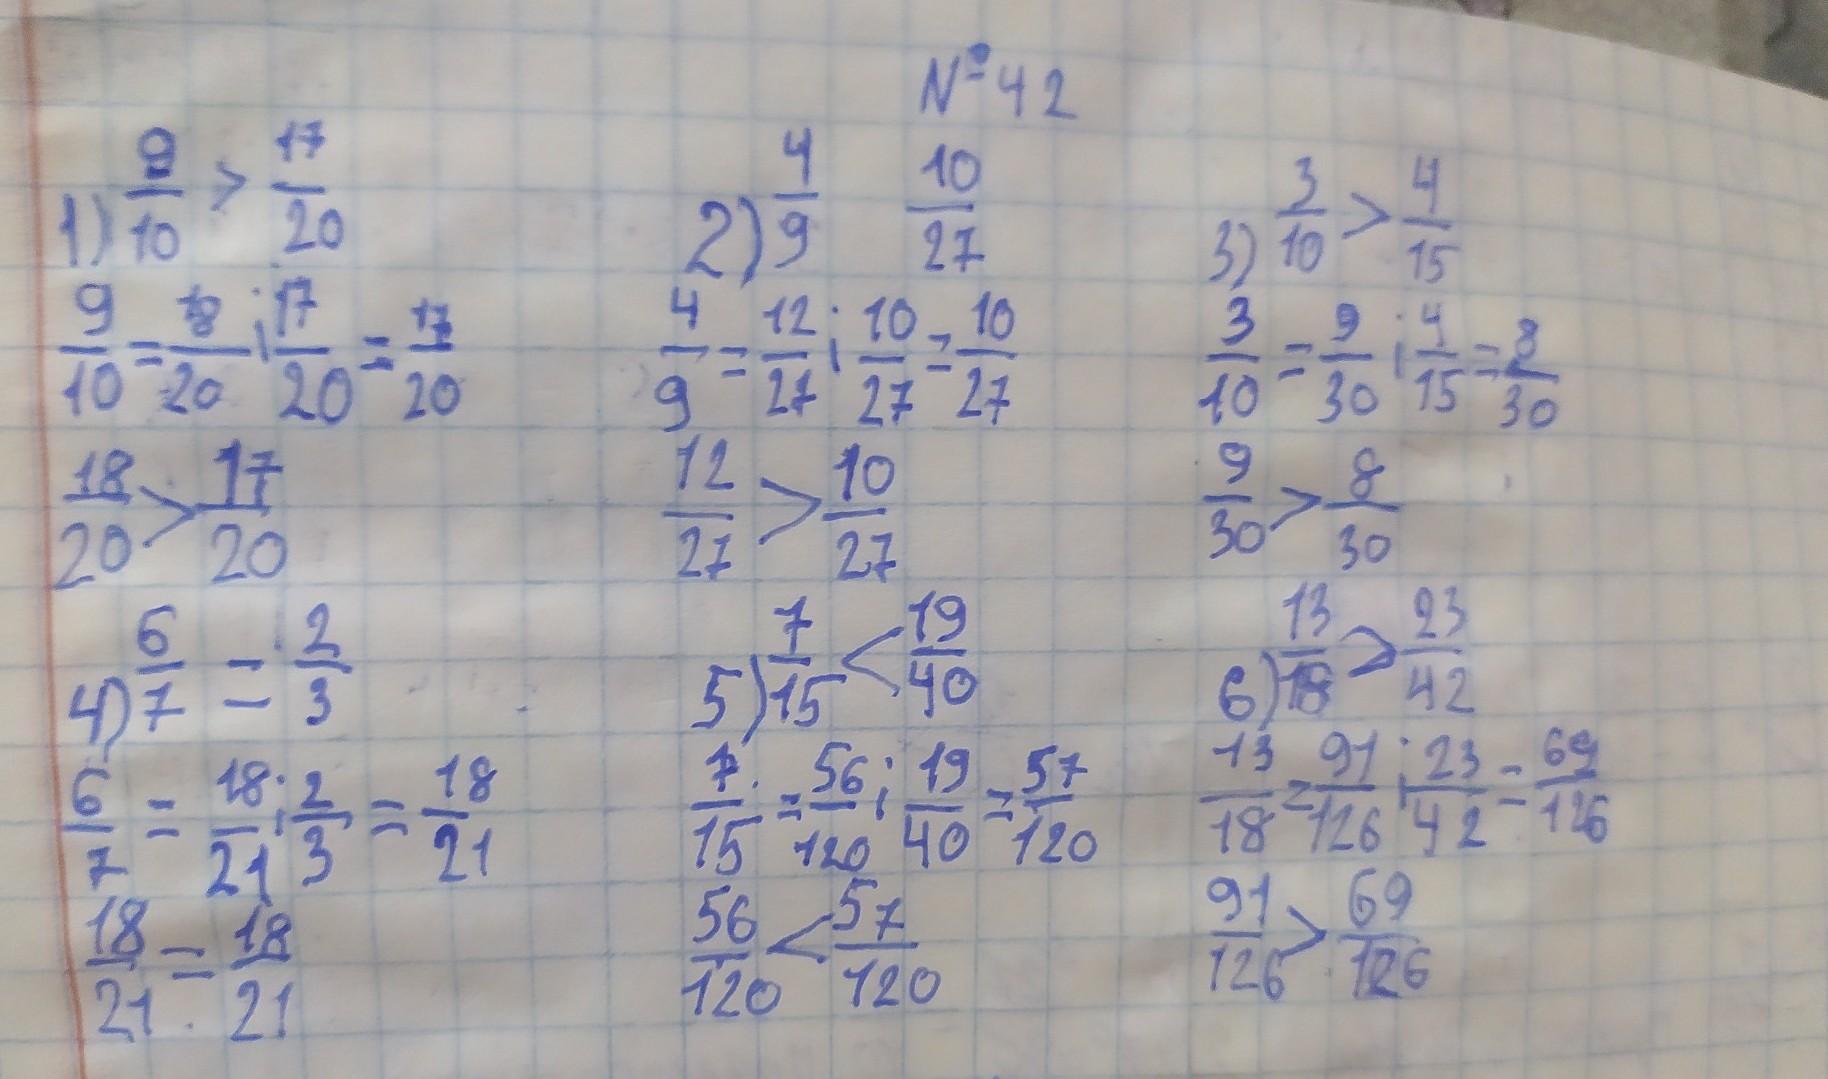 №42
1) 9/10 > 17/20
9/10 = 18/20 ; 17/20 = 17/20
18/20 > 17/20
2) 4/9 10/27
4/9 = 12/27 ; 10/27 = 10/27
12/27 > 10/27
3) 3/10 > 4/15
3/10 = 9/30 ; 4/15 = 8/30
9/30 > 8/30
4) 6/7 = 2/3
6/7 = 18/21 ; 2/3 = 18/21
18/21 = 18/21
5) 7/15 < 19/40
7/15 = 56/120 ; 19/40 = 57/120
56/120 < 57/120
6) 13/18 > 23/42
13/18 = 91/126 ; 23/42 = 69/126
91/126 > 69/126